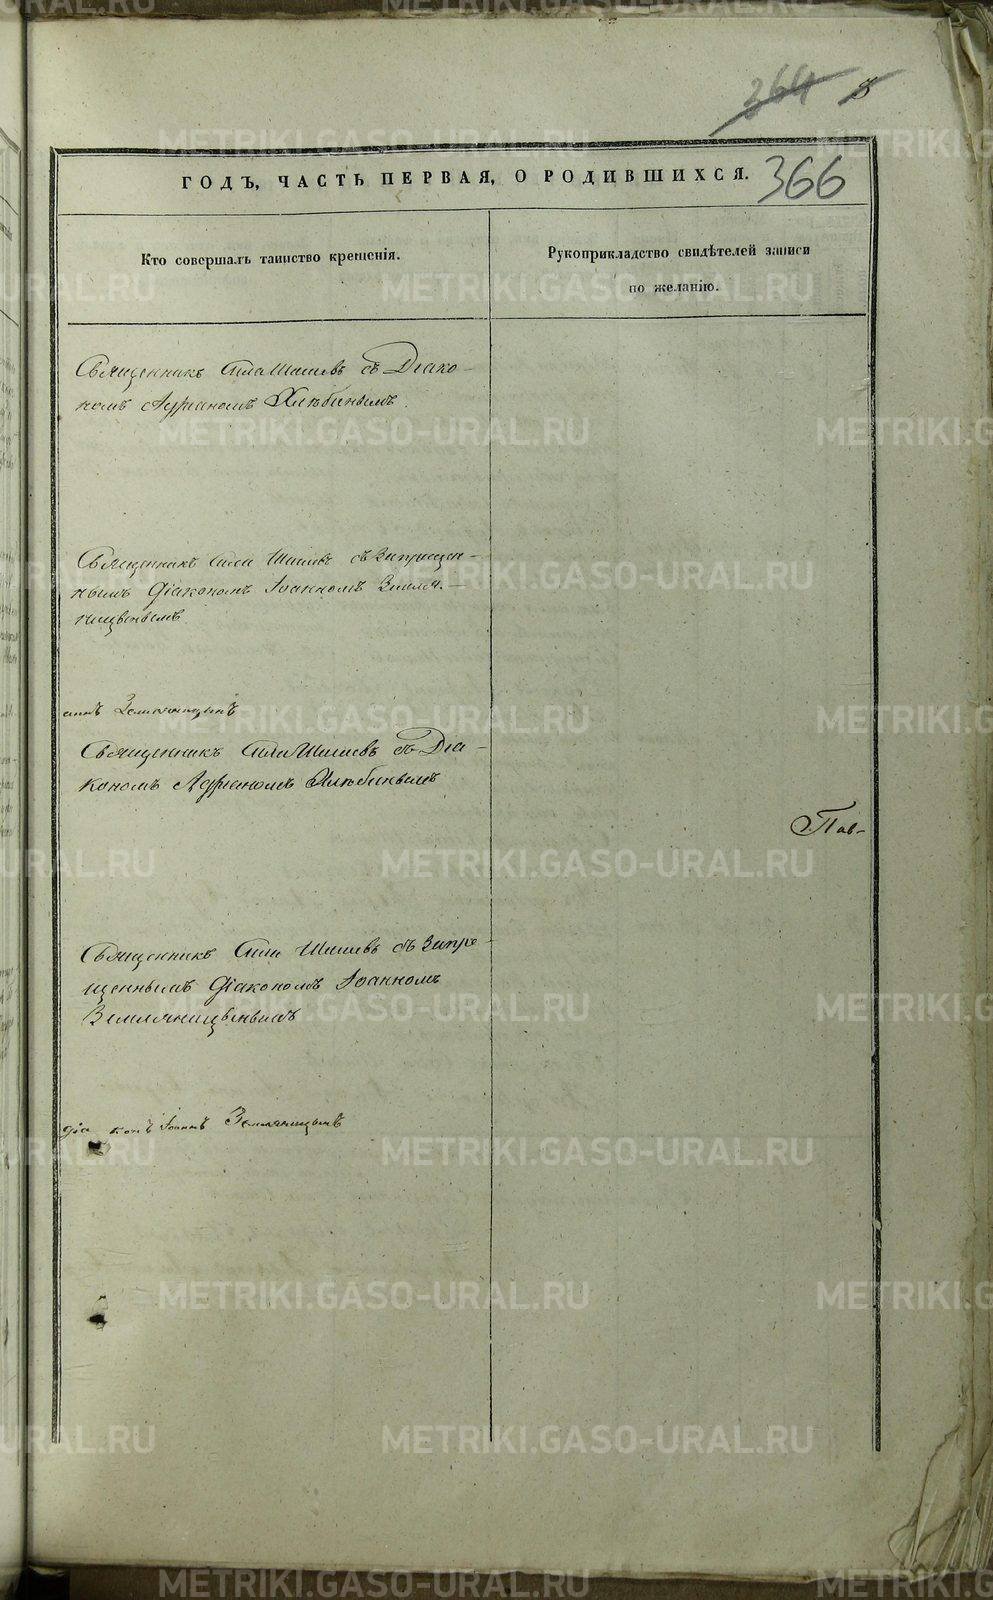 364 8
ГОДЪ, ЧАСТЬ ПЕРВАЯ, О РОДИВШИХСЯ. 366
Кто совершалъ таинство крещенія.
Рукоприкладство свидѣтелей записи
по желанію.
Священникъ Сила съ Діако-
номъ Адріаномъ Хлѣбинымъ
Священникъ Сила съ Запрещен-
нымъ Діакономъ Іоанномъ Земля-
ницынымъ
Земляницынъ
Священникъ Сила съ Діа-
кономъ Адріаномъ Хлѣбинымъ
Пав-
Священникъ Сила съ Запре-
щеннымъ Діакономъ Іоанномъ
Земляницынымъ
діаконъ Іоаннъ Земляницынъ
METRIKI.GASO-URAL.RU